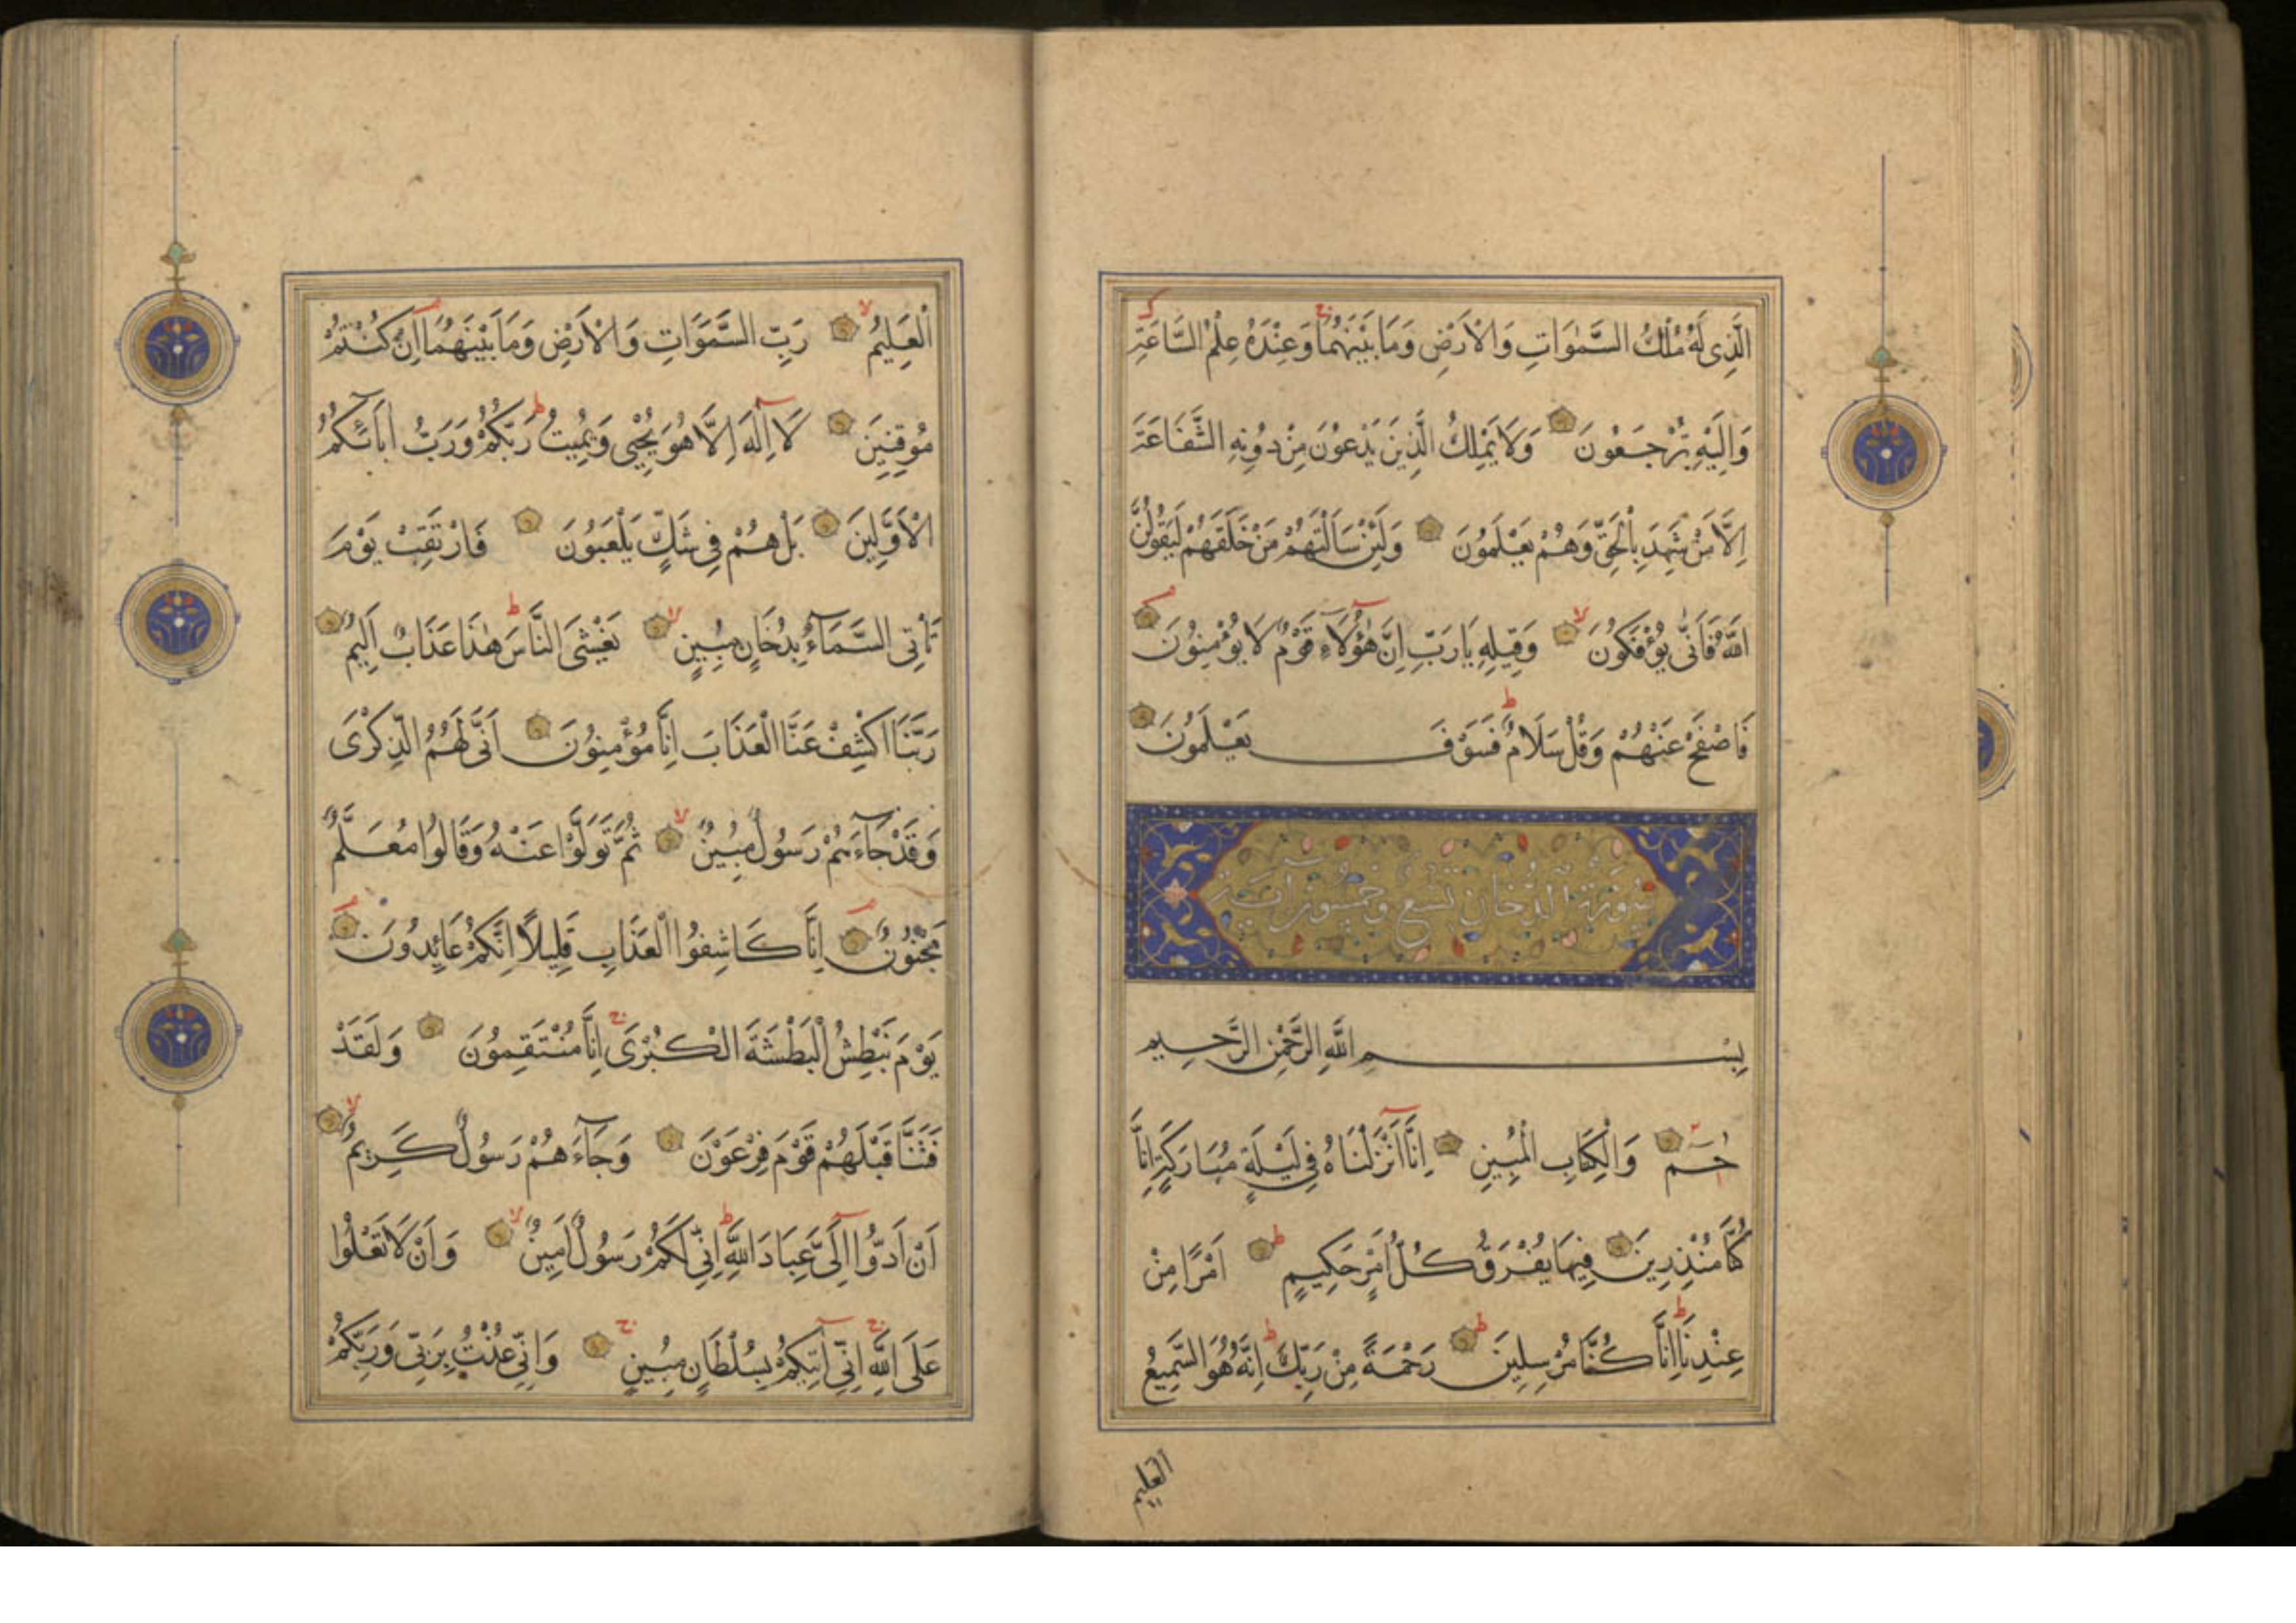 الَّذِى لَهُ مُلْكُ السَّمٰوَاتِ وَالْاَرْضِ وَمَا بَيْنَهُمَا وَعِنْدَهُ عِلْمُ السَّاعَةِ
وَاِلَيْهِ تُرْجَعُونَ وَلَا يَمْلِكُ الَّذِينَ يَدْعُونَ مِنْ دُونِهِ الشَّفَاعَةَ
اِلَّا مَنْ شَهِدَ بِالْحَقِّ وَهُمْ يَعْلَمُونَ وَلَئِنْ سَاَلْتَهُمْ مَنْ خَلَقَهُمْ لَيَقُولُنَّ
اللّٰهُ فَاَنّٰى يُؤْفَكُونَ وَقِيلِهِ يَا رَبِّ اِنَّ هٰؤُلَآءِ قَوْمٌ لَا يُؤْمِنُونَ
فَاصْفَحْ عَنْهُمْ وَقُلْ سَلَامٌ فَسَوْفَ يَعْلَمُونَ
سُورَةُ الدُّخَانِ تِسْعٌ وَخَمْسُونَ آيَة
بِسْمِ اللّٰهِ الرَّحْمٰنِ الرَّحِيمِ
حٰمٓ وَالْكِتَابِ الْمُبِينِ اِنَّآ اَنْزَلْنَاهُ فِى لَيْلَةٍ مُبَارَكَةٍ اِنَّا
كُنَّا مُنْذِرِينَ فِيهَا يُفْرَقُ كُلُّ اَمْرٍ حَكِيمٍ اَمْرًا مِنْ
عِنْدِنَا اِنَّا كُنَّا مُرْسِلِينَ رَحْمَةً مِنْ رَبِّكَ اِنَّهُ هُوَ السَّمِيعُ
العليم
الْعَلِيمُ رَبِّ السَّمٰوَاتِ وَالْاَرْضِ وَمَا بَيْنَهُمَآ اِنْ كُنْتُمْ
مُوقِنِينَ لَآ اِلٰهَ اِلَّا هُوَ يُحْيِى وَيُمِيتُ رَبُّكُمْ وَرَبُّ اٰبَآئِكُمُ
الْاَوَّلِينَ بَلْ هُمْ فِى شَكٍّ يَلْعَبُونَ فَارْتَقِبْ يَوْمَ
تَاْتِى السَّمَآءُ بِدُخَانٍ مُبِينٍ يَغْشَى النَّاسَ هٰذَا عَذَابٌ اَلِيمٌ
رَبَّنَا اكْشِفْ عَنَّا الْعَذَابَ اِنَّا مُؤْمِنُونَ اَنّٰى لَهُمُ الذِّكْرٰى
وَقَدْ جَآءَهُمْ رَسُولٌ مُبِينٌ ثُمَّ تَوَلَّوْا عَنْهُ وَقَالُوا مُعَلَّمٌ
مَجْنُونٌ اِنَّا كَاشِفُوا الْعَذَابِ قَلِيلًا اِنَّكُمْ عَايِدُونَ
يَوْمَ نَبْطِشُ الْبَطْشَةَ الْكُبْرٰى اِنَّا مُنْتَقِمُونَ وَلَقَدْ
فَتَنَّا قَبْلَهُمْ قَوْمَ فِرْعَوْنَ وَجَآءَهُمْ رَسُولٌ كَرِيمٌ
اَنْ اَدُّوٓا اِلَىَّ عِبَادَ اللّٰهِ اِنِّى لَكُمْ رَسُولٌ اَمِينٌ وَاَنْ لَا تَعْلُوا
عَلَى اللّٰهِ اِنِّىٓ اٰتِيكُمْ بِسُلْطَانٍ مُبِينٍ وَاِنِّى عُذْتُ بِرَبِّى وَرَبِّكُمْ